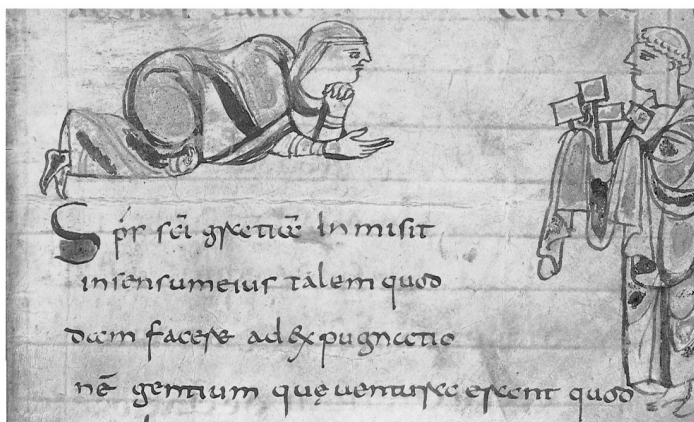 Spr̄ sc̄i gratiae Inmisit
insensumeius talem quod
dam facere adexpugnatio
nē gentium quę uenturae erant quod